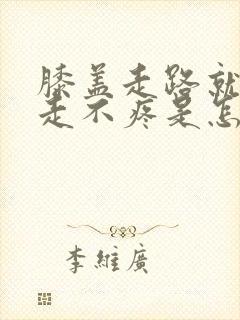 膝盖走路就
走不疼是怎
李維廣